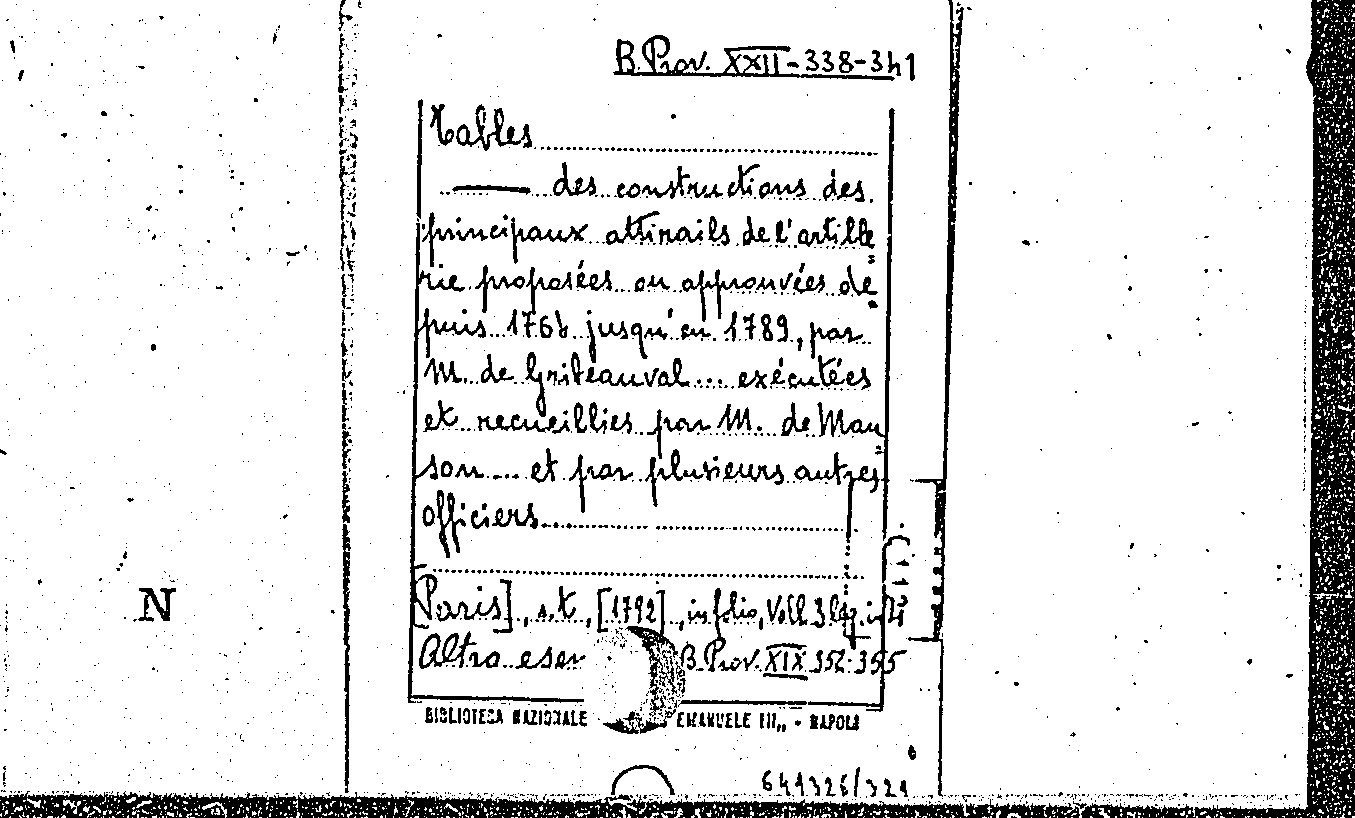 B. Prov. XXII-338-341
Tables
des constructions des
principaux attirails de l'artille
rie proposées ou approuvées de
puis 1764 jusqu'en 1789, par
M. de Gribeauval... exécutées
et recueillies par M. de Man
son... et par plusieurs autres
officiers...
[Paris], s.t., [1792], in folio, Voll. 3 leg. in
Altro esem B. Prov. XIX 352-355
BIBLIOTECA NAZIONALE EMANUELE III,, - NAPOLI
641326/321
N